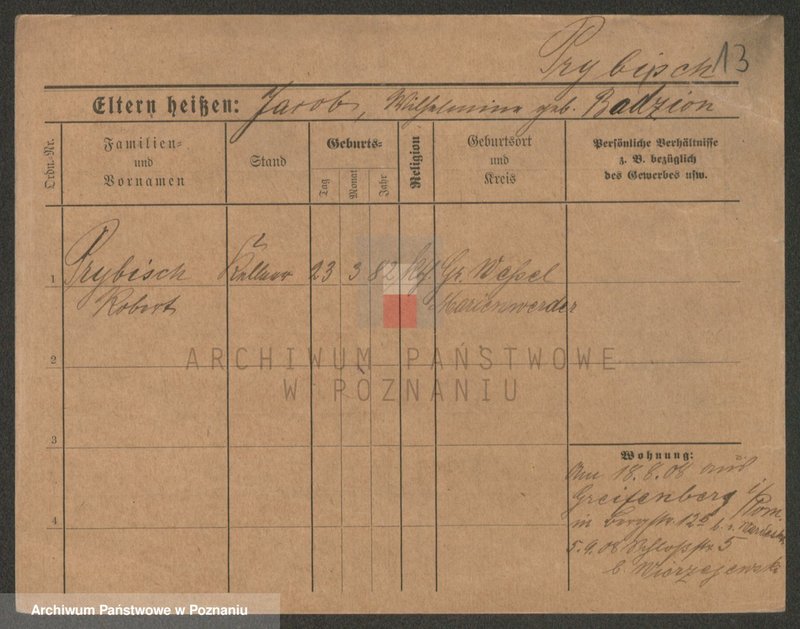 Prybisch 13
Eltern heißen: Jacob, Wilhelmine geb. Badzion
Ordn.-Nr.
Familien- und Vornamen
Stand
Geburts-
Tag
Monat
Jahr
Religion
Geburtsort und Kreis
Persönliche Verhältnisse z. B. bezüglich des Gewerbes usw.
1 Prybisch Kellner 23 3 82 Gr. Wessel
Robert Marienwerder
2
ARCHIWUM PAŃSTWOWE
W POZNANIU
3
Wohnung:
Am 18.8.08 aus
Greifenberg i/Pom.
in Bergstr. 12
4
5.9.08 Schloßstr. 5
b.
Archiwum Państwowe w Poznaniu